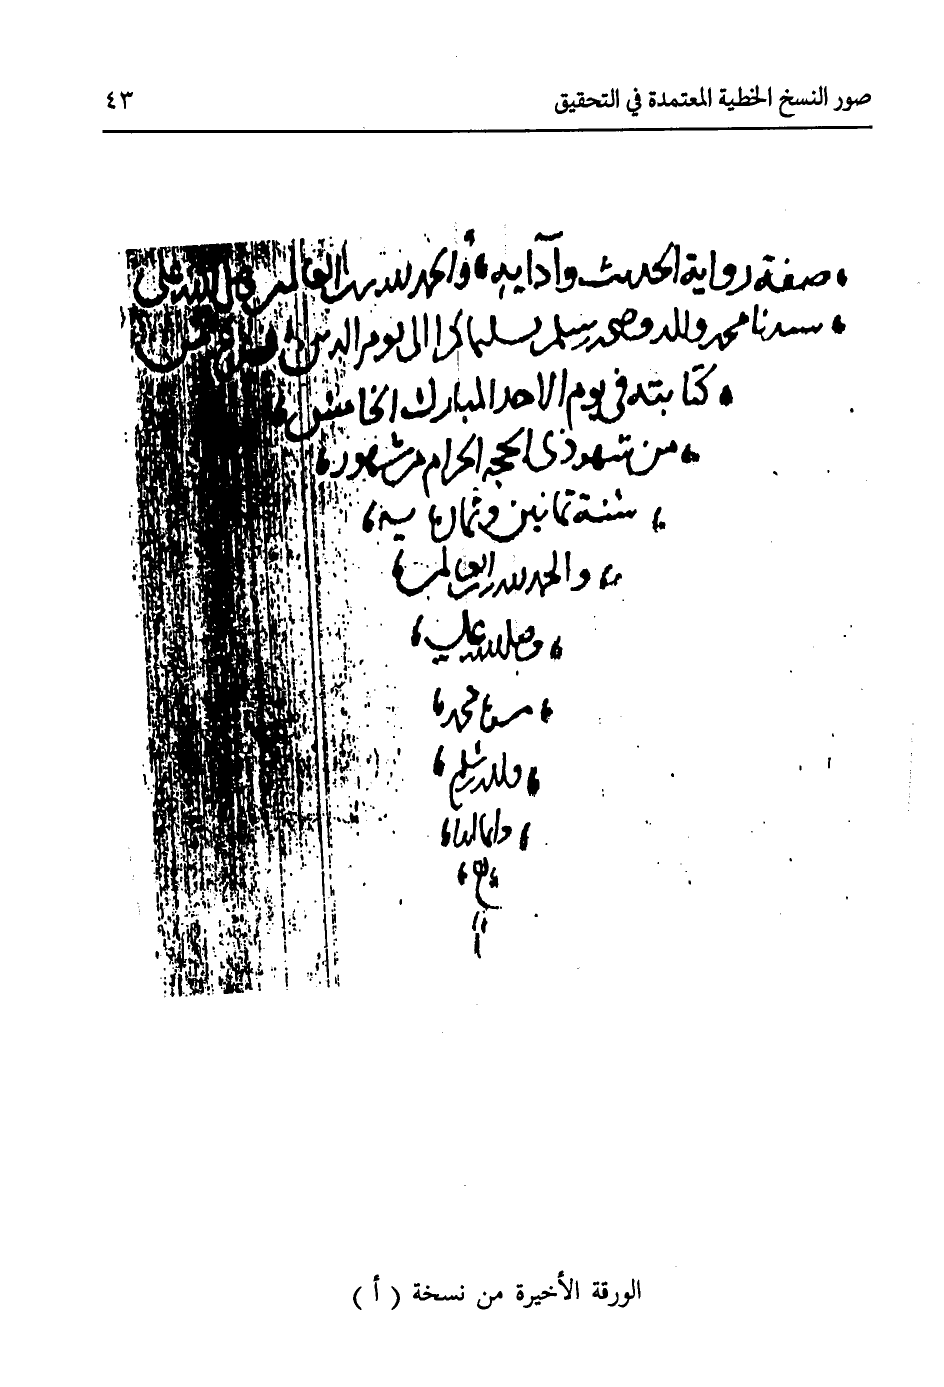 صور النسخ الخطية المعتمدة في التحقيق ٤٣
صفة رواية الحديث وآدابه والحمد لله رب العالمين وصلى الله على
سيدنا محمد واله وصحبه وسلم تسليما كثيرا الى يوم الدين
كتابته في يوم الاحد المبارك الخامس
من شهر ذي الحجه الحرام من شهور
سنة ثمانين وثمان مايه
والحمد لله رب العالمين
وصلى الله علي
محمد
واله وسلم
دايما ابدا
الورقة الأخيرة من نسخة ( أ )